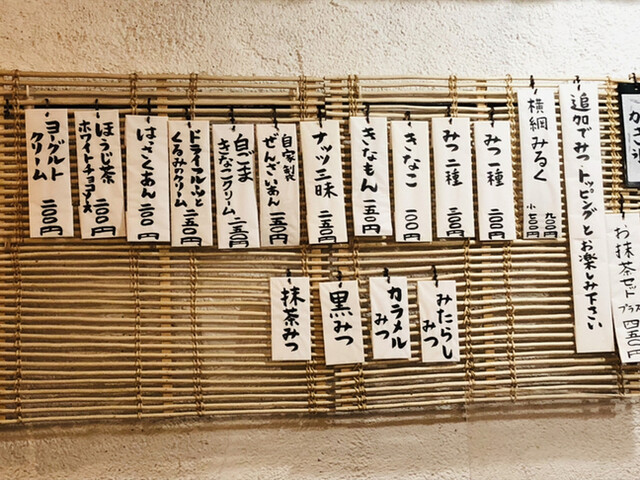 追加でみつ・トッピングとお楽しみ下さい
お抹茶セット
プラス
四五〇円
横綱みるく
九〇〇円
小 七〇〇円
みつ一種
二〇〇円
みつ二種
三〇〇円
きなこ
一〇〇円
きなもん
一五〇円
ナッツ三昧
二五〇円
自家製
ぜんざいあん
二五〇円
白ごま
きなこクリーム
二五〇円
ドライフルーツと
くるみのクリーム
二五〇円
はっさくあん
二〇〇円
ほうじ茶
ホワイトチョコあん
二〇〇円
ヨーグルト
クリーム
二〇〇円
みたらし
みつ
カラメル
みつ
黒みつ
抹茶みつ